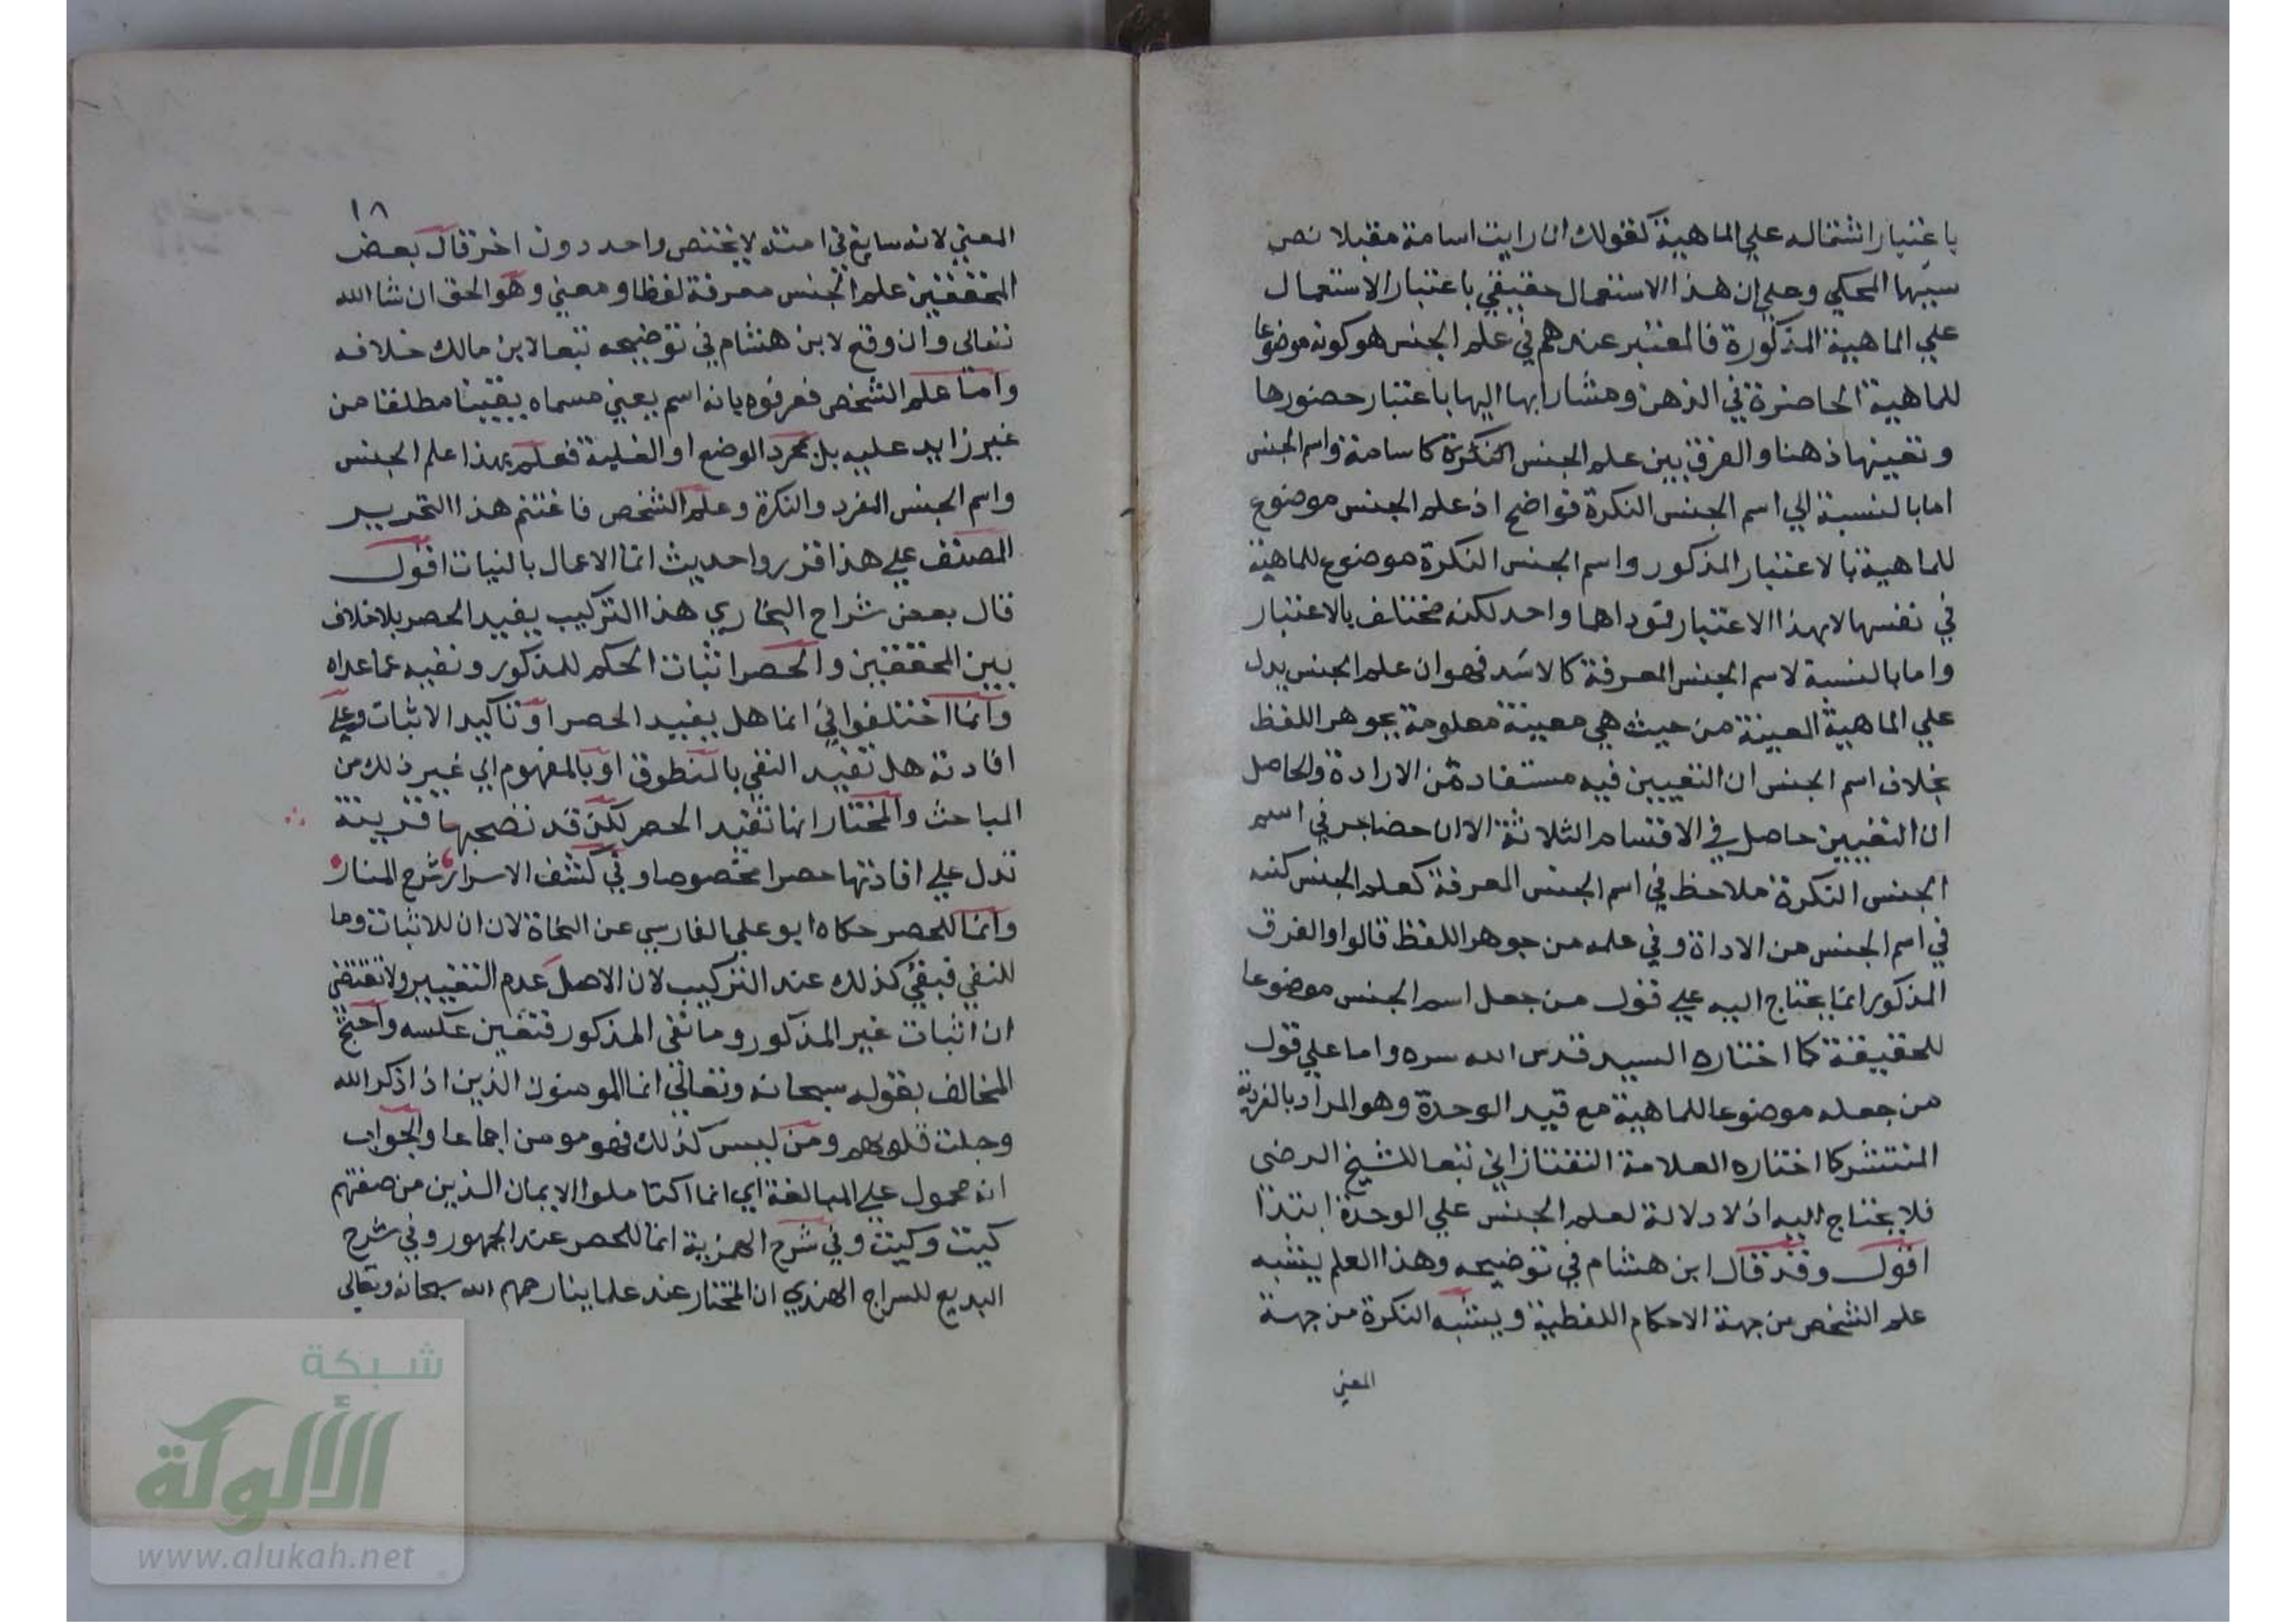 باعتبار اشتماله علي الماهية كقولك ان رايت اسامة مقبلا نص
سيبها المحكي وعلي ان هذا الاستعمال حقيقي باعتبار الاستعمال
علي الماهية المذكورة فالمعتبر عندهم في علم الجنس هو كونه موضوعا
للماهية الحاضرة في الذهن ومشارا بها اليها باعتبار حضورها
وتعينها ذهنا والفرق بين علم الجنس النكرة كاسامة واسم الجنس
اما بالنسبة الي اسم الجنس النكرة فواضح اذ علم الجنس موضوع
للماهية بالاعتبار المذكور واسم الجنس النكرة موضوع للماهية
في نفسها لا بهذا الاعتبار فموداهما واحد لكنه مختلف بالاعتبار
واما بالنسبة لاسم الجنس المعرفة كالاسد فهو ان علم الجنس يدل
علي الماهية المعينة من حيث هي معينة معلومة بجوهر اللفظ
بخلاف اسم الجنس ان التعيين فيه مستفاد من الاداة والحاصل
ان التعيين حاصل في الاقسام الثلاثة الا ان في اسم
الجنس النكرة ملاحظ في اسم الجنس المعرفة كعلم الجنس لكنه
في اسم الجنس من الاداة وفي علمه من جوهر اللفظ قالوا والفرق
المذكور انما يحتاج اليه علي قول من جعل اسم الجنس موضوعا
للحقيقة كما اختاره السيد قدس الله سره واما علي قول
من جعله موضوعا للماهية مع قيد الوحدة وهو المراد بالفردية
المنتشر كما اختاره العلامة التفتازاني تبعا للشيخ الرضي
فلا يحتاج اليه اذ لا دلالة لعلم الجنس علي الوحدة ابتدا
اقول وقد قال ابن هشام في توضيحه وهذا العلم يشبه
علم الشخص من جهة الاحكام اللفظية ويشبه النكرة من جهة
المعني
١٨
المعني لانه سايغ في امته لا يختص واحد دون اخر قال بعض
المحققين علم الجنس معرفة لفظا ومعني وهو الحق ان شا الله
تعالي وان وقع لابن هشام في توضيحه تبعا لابن مالك خلافه
واما علم الشخص فعرفوه بانه اسم يعني مسماه يقينا مطلقا من
غير زايد عليه بل بمجرد الوضع او الغلبة فعلم بهذا علم الجنس
واسم الجنس المفرد والنكرة وعلم الشخص فاغتنم هذا التحرير
المصنف علي هذا قررو احديث انما الاعمال بالنيات اقول
قال بعض شراح البخاري هذا التركيب يفيد الحصر بلا خلاف
بين المحققين والحصر اثبات الحكم للمذكور ونفيه عما عداه
وانما اختلفوا في انما هل يفيد الحصر او تاكيد الاثبات وعلي
افادته هل تفيد النفي بالمنطوق او بالمفهوم الي غير ذلك من
المباحث والمختار انها تفيد الحصر لكن قد تصحبها قرينة
تدل علي افادتها حصرا مخصوصا وفي كشف الاسرار شرح المنار
وانما للحصر حكاه ابو علي الفارسي عن النحاة لان ان للاثبات وما
للنفي فبقي كذلك عند التركيب لان الاصل عدم التغيير ولا تقتضي
ان اثبات غير المذكور وما نفى المذكور فتعين عكسه واحتج
المخالف بقوله سبحانه وتعالي انما المومنون الذين اذا ذكر الله
وجلت قلوبهم ومن ليس كذلك فهو مومن اجماعا والجواب
انه محمول علي المبالغة اي انما اكتاملوا الايمان الذين من صفتهم
كيت وكيت وفي شرح الهمزية انما للحصر عند الجمهور وفي شرح
البديع للسراج الهندي ان المختار عند علماينا رحمهم الله سبحانه وتعالي
شبكة
الألوكة
www.alukah.net